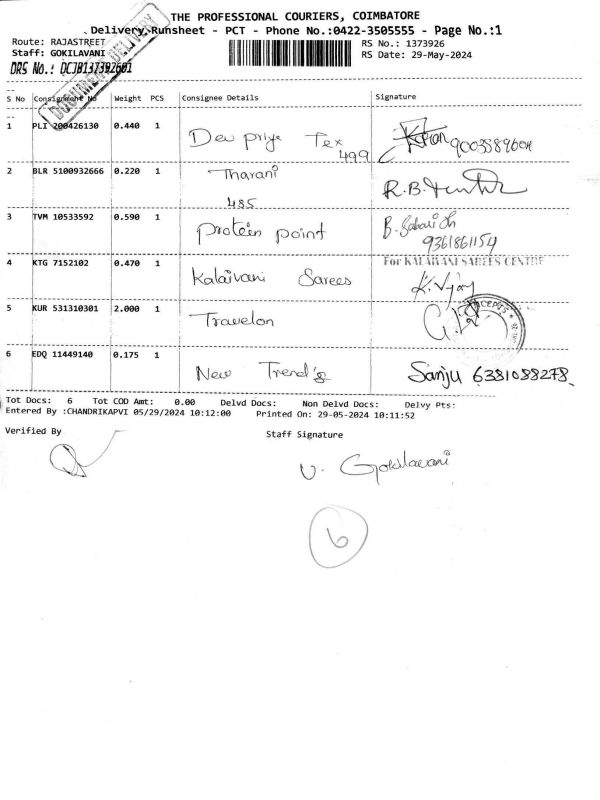 THE PROFESSIONAL COURIERS, COIMBATORE
Delivery Runsheet - PCT - Phone No.:0422-3505555 - Page No.:1
Route: RAJASTREET
RS No.: 1373926
Staff: GOKILAVANI
RS Date: 29-May-2024
DRS No.: DCJB137392601
DOCUMENT DELIVERY
S No Consignment No Weight PCS Consignee Details Signature
1 PLI 200426130 0.440 1 Dev priya Tex 499
2 BLR 5100932666 0.220 1 Tharani 485
3 TVM 10533592 0.590 1 protein point 9361861154
4 KTG 7152102 0.470 1 Kalaivani Sarees For KALAIVANI SAREES CENTRE K. Vijay
5 KUR 531310301 2.000 1 Travelon
6 EDQ 11449140 0.175 1 New Trend's Sanju 6381088278
Tot Docs: 6 Tot COD Amt: 0.00 Delvd Docs: Non Delvd Docs: Delvy Pts:
Entered By :CHANDRIKAPVI 05/29/2024 10:12:00 Printed On: 29-05-2024 10:11:52
Verified By Staff Signature
V. Gokilavani
6